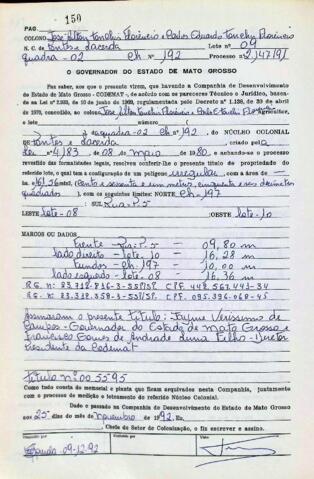 PAG. 150
COLONO José Ailton Tonelin Florêncio e Carlos Eduardo Tonelin Florêncio
N. C. de Pontes e Lacerda Lote nº 09
quadra-02 ch nº 192 Processo nº 2.147/91
O GOVERNADOR DO ESTADO DE MATO GROSSO
Faz saber, aos que a presente virem, que havendo a Companhia de Desenvolvimento
do Estado de Mato Grosso - CODEMAT -, de acordo com os pareceres Técnico e Jurídico, basea-
da na Lei nº 2.933, de 10 de junho de 1969, regulamentada pelo Decreto nº 1.138, de 20 de abril
de 1970, concedido ao colono,
o lote, número
quadra-02 ch nº 192, do NÚCLEO COLONIAL
de Pontes e Lacerda criado pela
Lei nº 4.183, de 08, maio de 1980, e achando-se o processo
revestido das formalidades legais, resolven conferir-lhe o presente título de propriedade do
referido lote, o qual tem a configuração de um polígono irregular, com a área de
161,56 m² (Cento e sessenta e um metros, cinquenta e seis decímetros
quadrados), com os seguintes limites: NORTE ch-197
SUL Rua: P.5
LESTE lote-08 OESTE lote-10
MARCOS OU DADOS
Frente - Rua: P.5 - 09,80 m
lado direito - lote-10 - 16,28 m
Fundos - ch-197 - 10,00 m
lado esquerdo - lote-08 - 16,36 m
RG. nº 23.318-816-3-SSP/SP. CPF.
RG. nº 23.318.358-3-SSP/SP. CPF. 095.396.068-45
Assinaram o presente título: Jayme Veríssimo de
Campos - Governador do Estado de Mato Grosso e
Francisco Gomes de Andrade Lima Filho - Diretor
Presidente da Codemat
Título nº 005595
Como tudo consta do memorial e planta que ficam arquivados nesta Companhia, juntamente
com o processo de medição e loteamento do referido Núcleo Colonial.
Dado e passado na Companhia de Desenvolvimento do Estado de Mato Grosso
aos 25 dias do mês de novembro de 1992. Eu
Chefe do Setor de Colonização, o fiz escrever e assino.
09-12-92